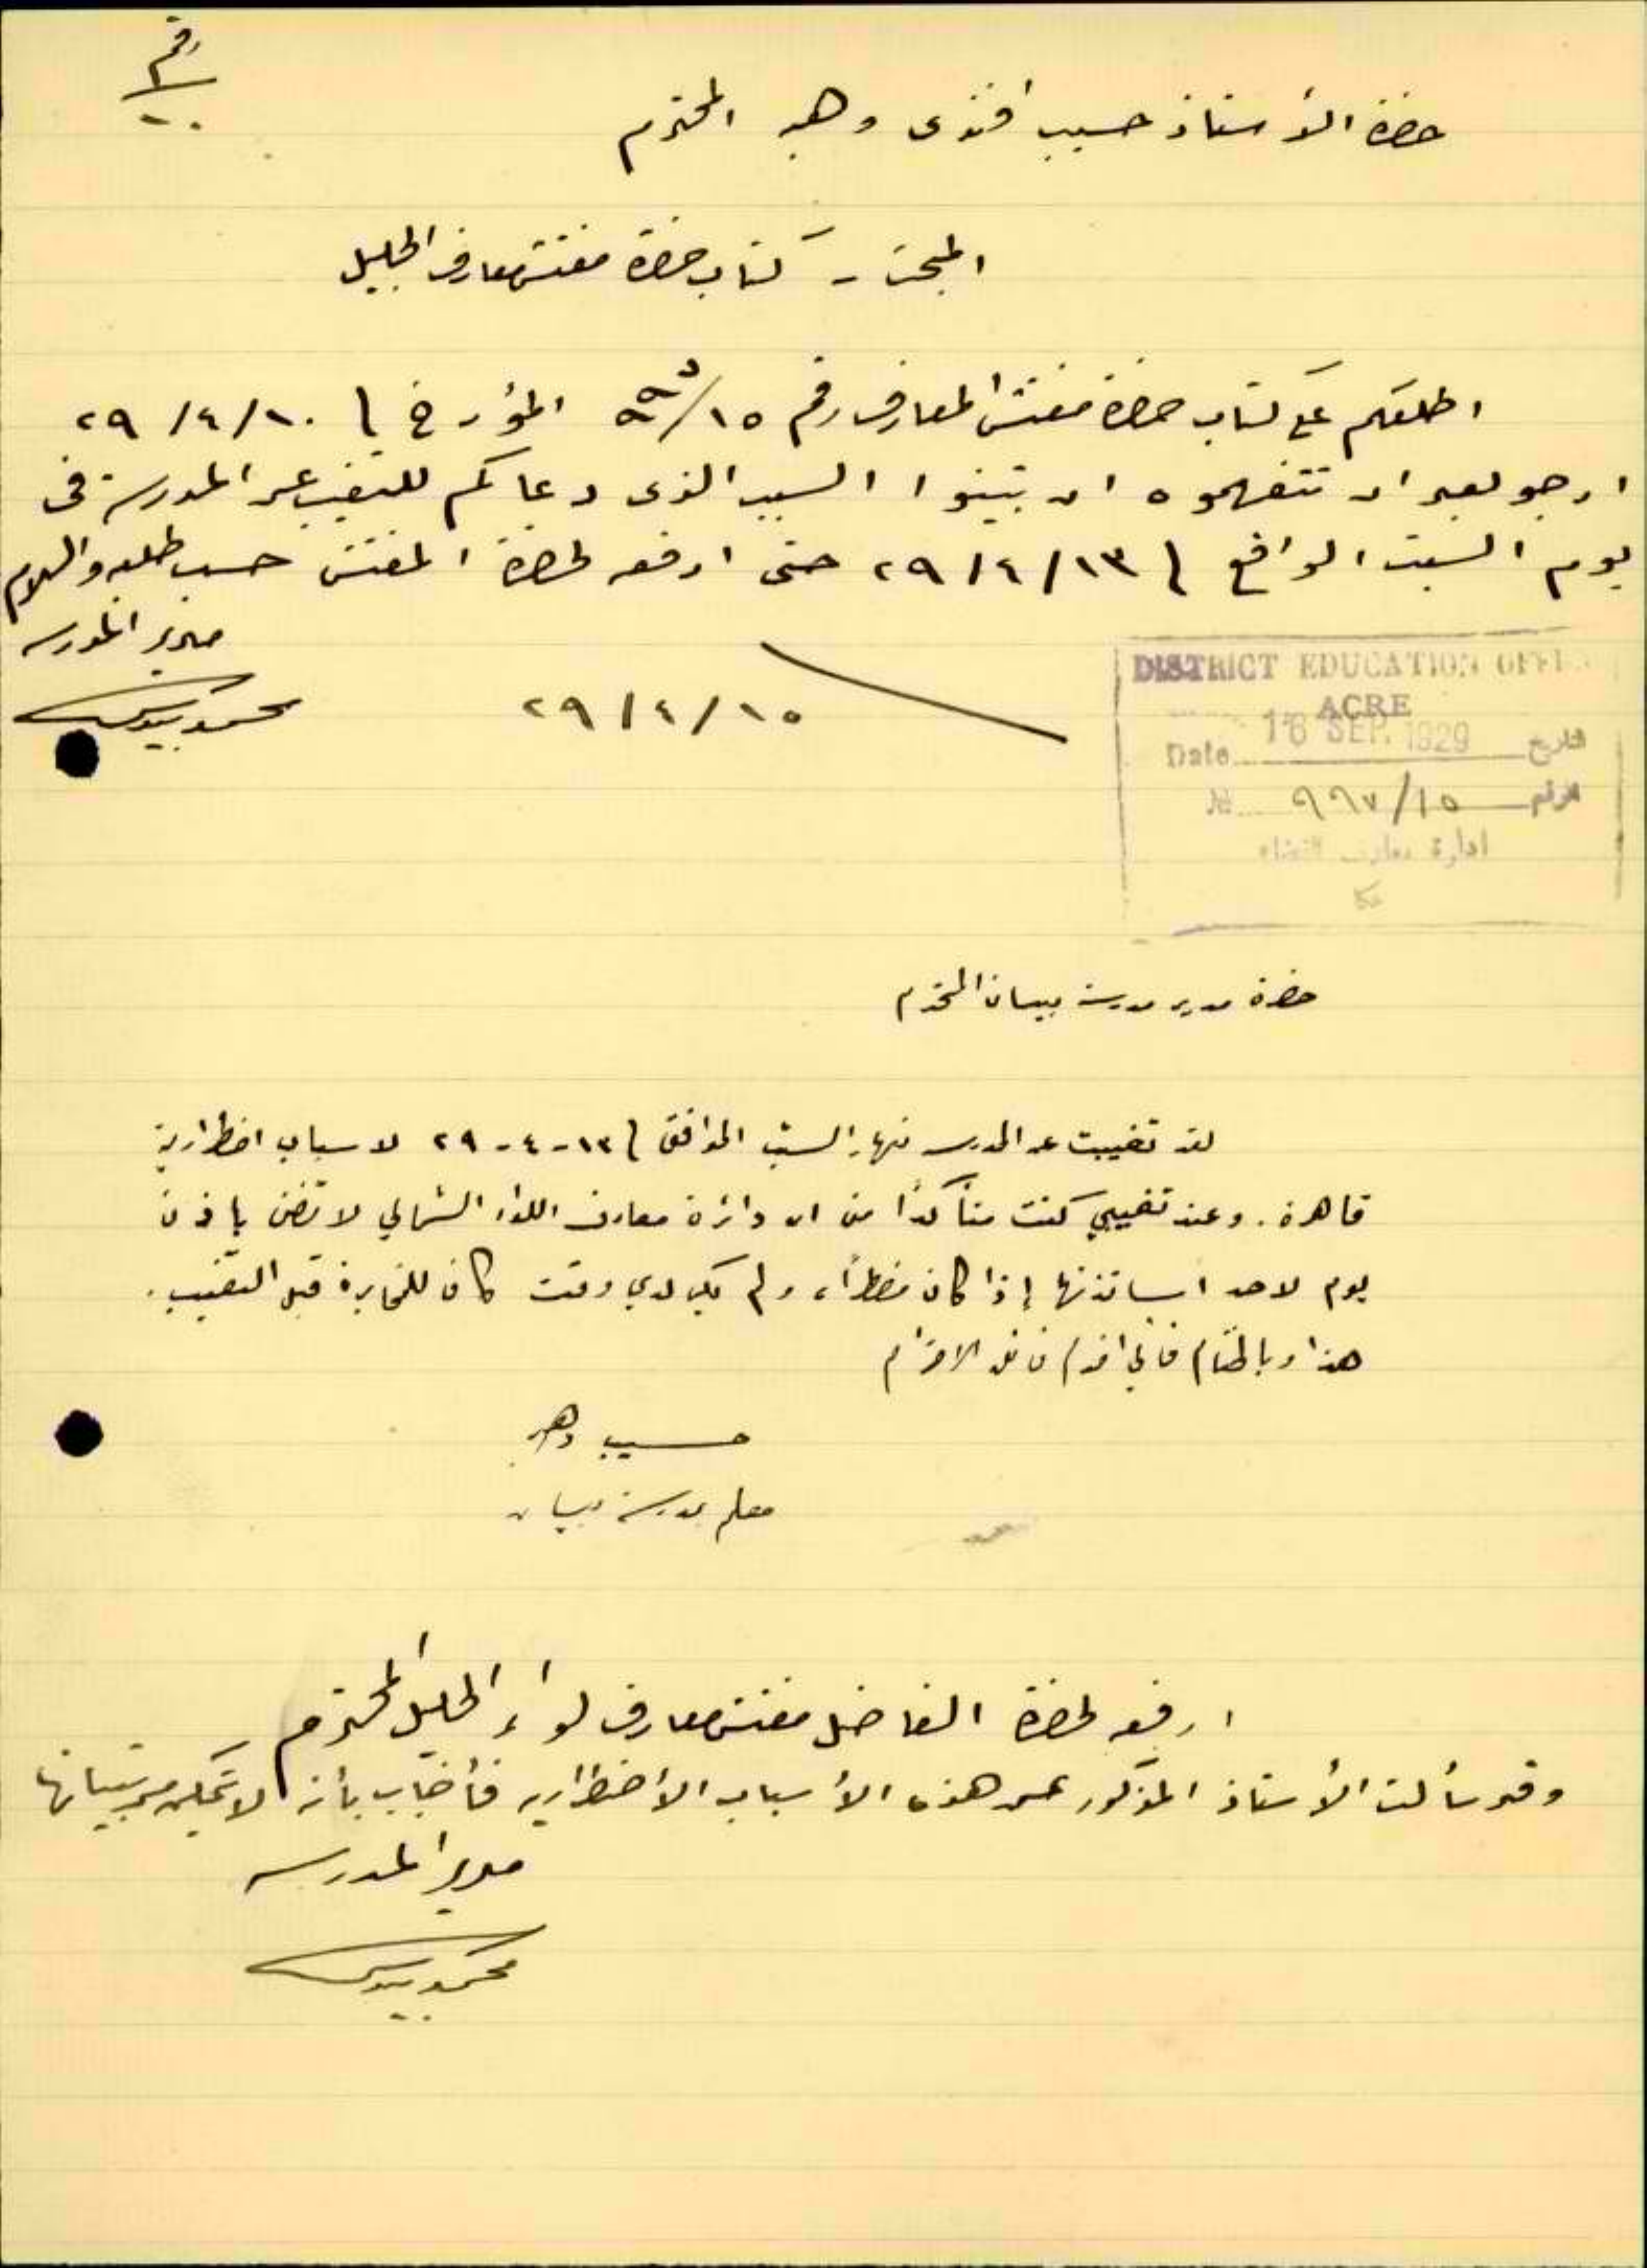 رقم
١٠
حضرة الأستاذ حسيب افندى وهبه المحترم
المبحث - كتاب حضرة مفتش معارف الجليل
اطلعكم على كتاب حضرة مفتش المعارف رقم ١٥/ المؤرخ في ١٠/٤/٢٩
ارجو بعد ان تتفهموه ان تبينوا السبب الذى دعاكم للتغيب عن المدرسة فى
يوم السبت الواقع في ١٣/٤/٢٩ حتى ارفعه لحضرة المفتش حسب طلبه والسلام
مدير المدرسه
١٥/٤/٢٩
محمد
DISTRICT EDUCATION OFFI
ACRE
Date 16 SEP. 1929 التاريخ
No. ٩٩٧/١٥ الرقم
ادارة معارف القضاء
عكا
حضرة مدير مدرسة بيسان المحترم
لقد تغيبت عن المدرسه نهار السبت الموافق في ١٣-٤-٢٩ لاسباب اضطرارية
قاهرة. وعند تغيبي كنت متأكدًا من ان دائرة معارف اللواء الشمالي لا تضن باذن
يوم لاحد اساتذتها إذا كان مضطرًا، ولم يكن لدي وقت كاف للمخابرة قبل التغيب.
هذا وبالختام فاني اقدم فائق الاحترام
حسيب وهبه
معلم بمدرسة بيسان
ارفعه لحضرة الفاضل مفتش معارف لواء الجليل المحترم
وقد سألت الأستاذ المذكور عن هذه الأسباب الأضطراريه فأجاب بأنه لا يتمكن من تبيانها
مدير المدرسه
محمد